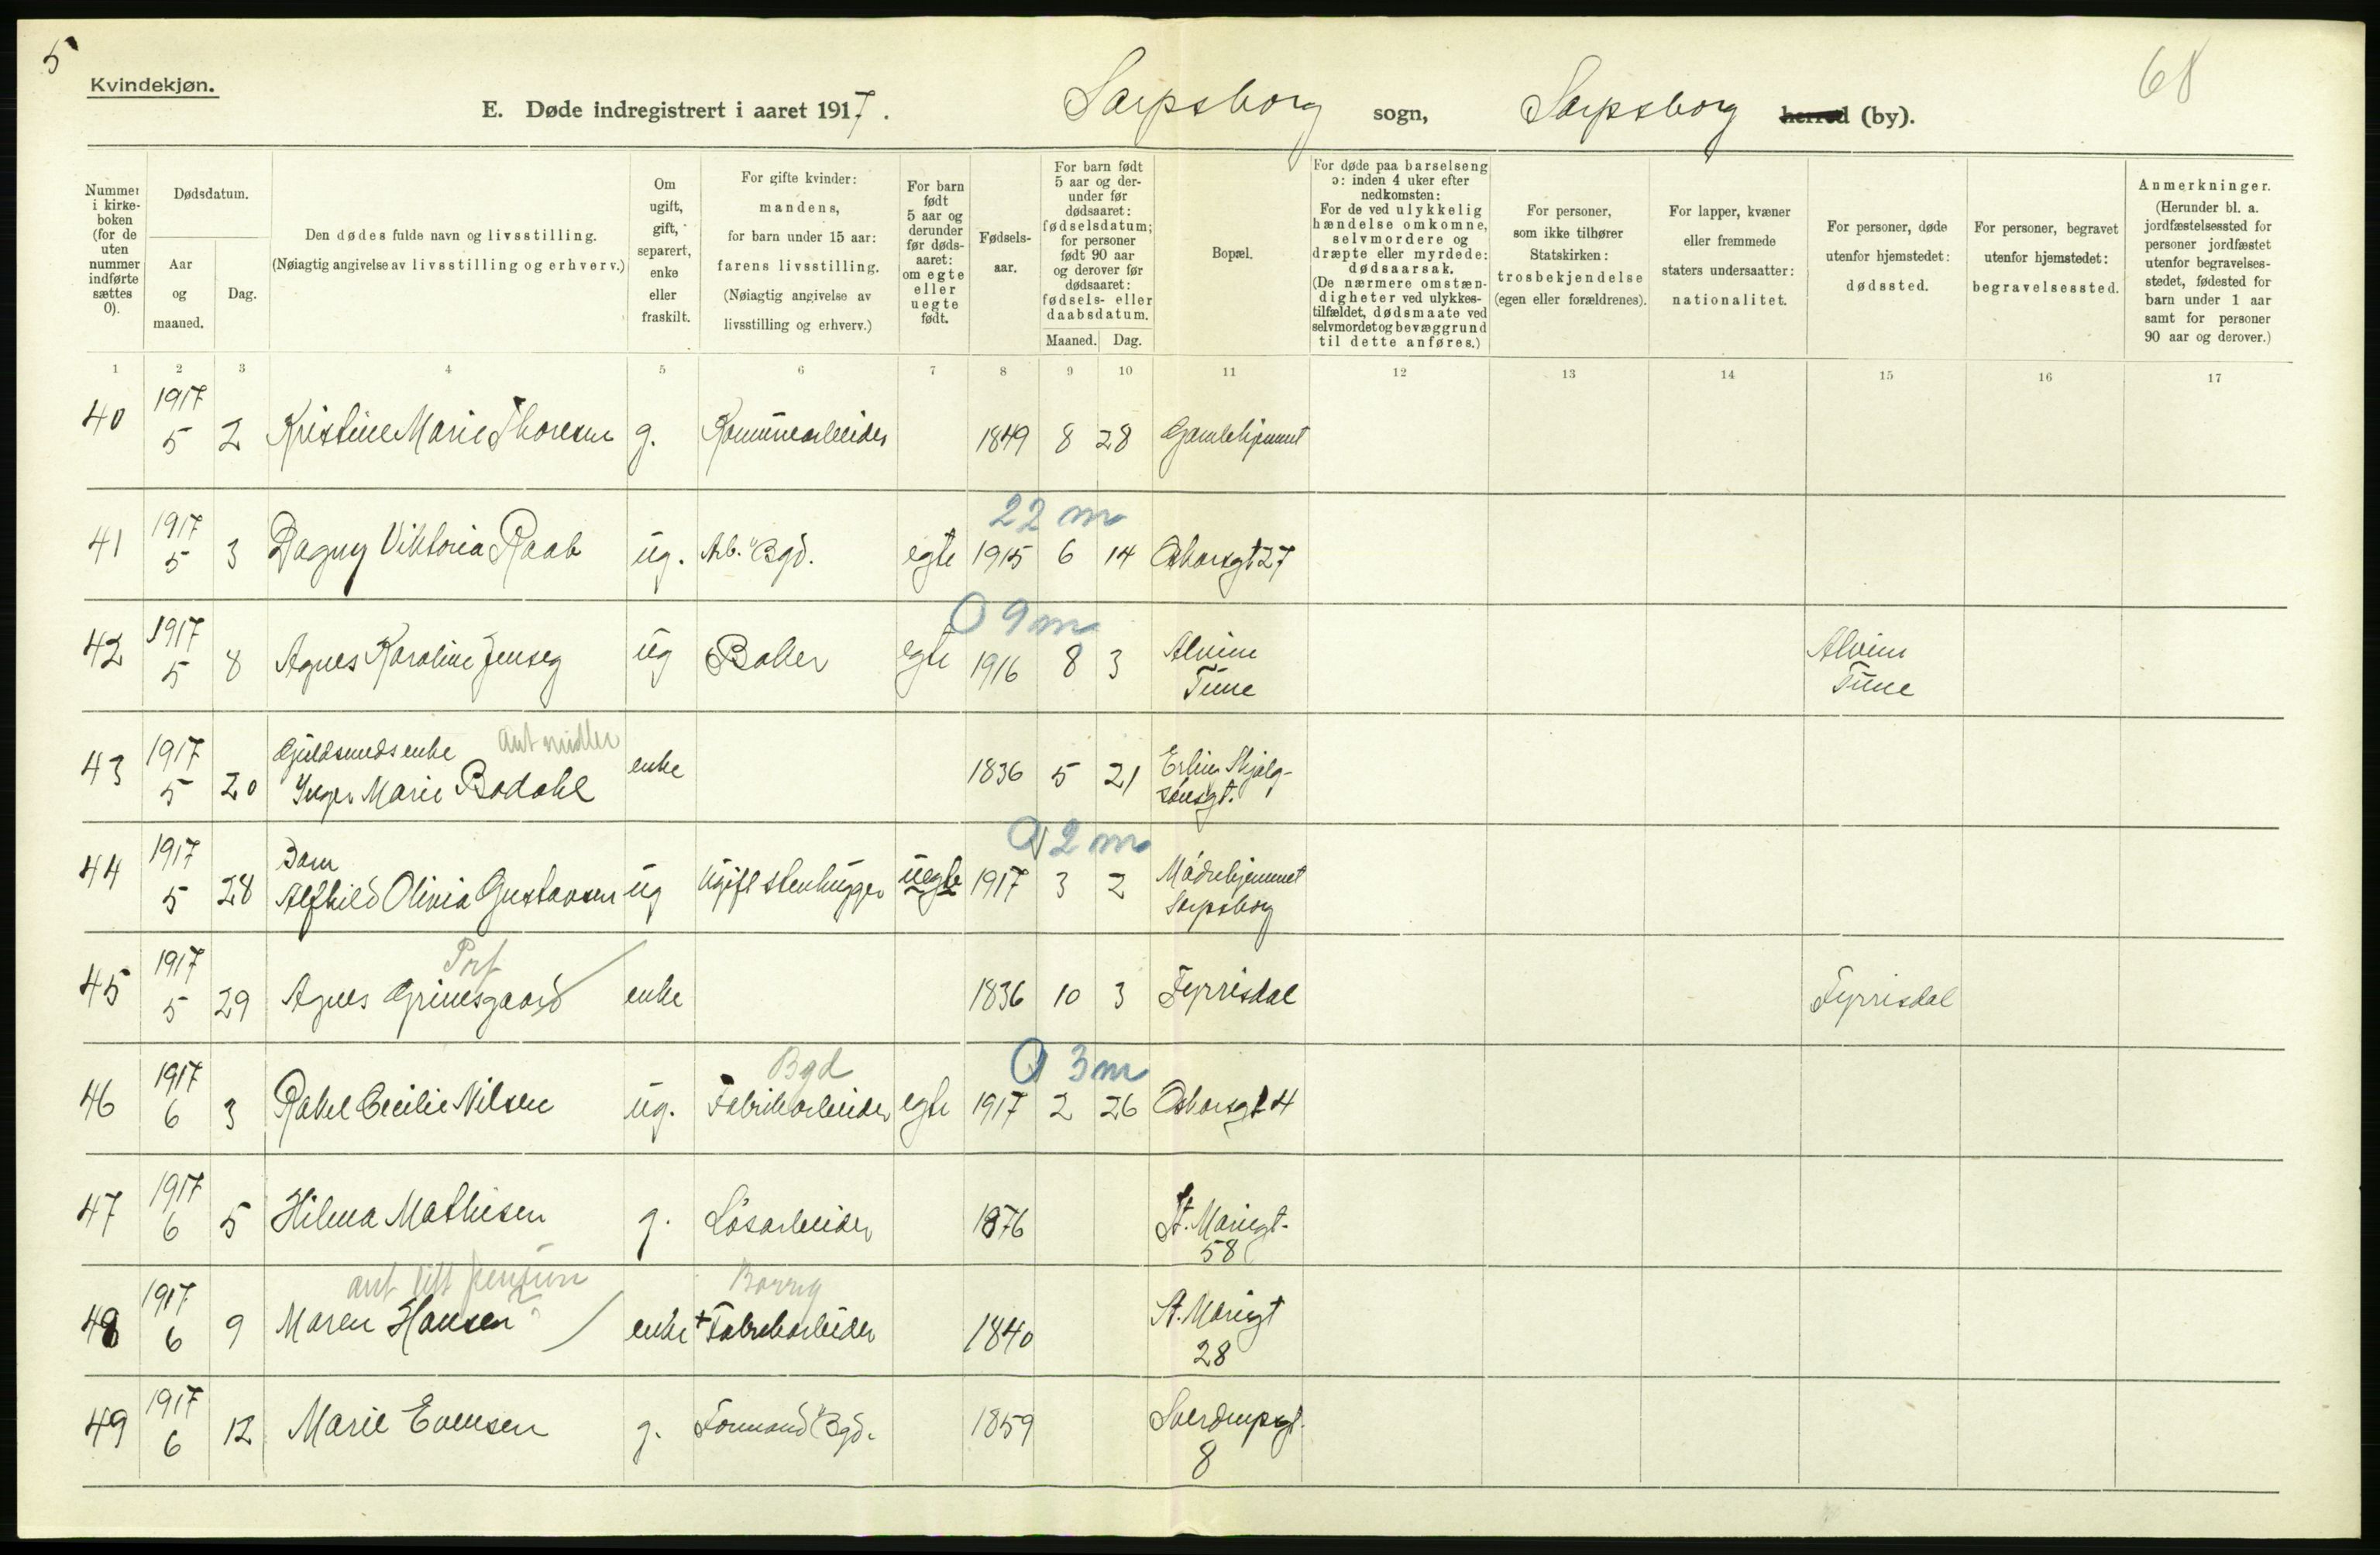 5
68
Kvindekjøn.
E. Døde indregistrert i aaret 1917. Sarpsborg sogn, Sarpsborg herred (by).
Nummer i kirke-boken (for de uten nummer indførte sættes 0).
Dødsdatum.
Aar og maaned.
Dag.
Den dødes fulde navn og livsstilling.
(Nøiagtig angivelse av livsstilling og erhverv.)
Om ugift, gift, separert, enke eller fraskilt.
For gifte kvinder: mandens, for barn under 15 aar: farens livsstilling.
(Nøiagtig angivelse av livsstilling og erhverv.)
For barn født 5 aar og derunder før døds-aaret: om egte eller uegte født.
Fødsels-aar.
For barn født 5 aar og der-under før dødsaaret: fødselsdatum; for personer født 90 aar og derover før dødsaaret: fødsels- eller daabsdatum.
Maaned. Dag.
Bopæl.
For døde paa barselseng ɔ: inden 4 uker efter nedkomsten: For de ved ulykkelig hændelse omkomne, selvmordere og dræpte eller myrdede: dødsaarsak. (De nærmere omstæn-digheter ved ulykkes-tilfældet, dødsmaate ved selvmordet og bevæggrund til dette anføres.)
For personer, som ikke tilhører Statskirken: trosbekjendelse (egen eller forældrenes).
For lapper, kvæner eller fremmede staters undersaatter: nationalitet.
For personer, døde utenfor hjemstedet: dødssted.
For personer, begravet utenfor hjemstedet: begravelsessted.
Anmerkninger. (Herunder bl. a. jordfæstelsessted for personer jordfæstet utenfor begravelses-stedet, fødested for barn under 1 aar samt for personer 90 aar og derover.)
1 2 3 4 5 6 7 8 9 10 11 12 13 14 15 16 17
40 1917 5 2 Kristine Marie Thoresen g. Komunearbeider 1849 8 28 Gamlehjemmet
22 m
41 1917 5 3 Dagny Viktoria Raab ug. Arb. Bgd. egte 1915 6 14 Oskarsgt 27
0 9 m
42 1917 5 8 Agnes Karoline Jenseg ug Baker egte 1916 8 3 Alvim Tune Alvim Tune
43 1917 5 20 Guldsmedsenke ant midler
Inger Marie Bodahl enke 1836 5 21 Erling Skjalg-sønsgt.
0 2 m
44 1917 5 28 Barn
Alfhild Olivia Gustavsen ug Ugift stenhugger uegte 1917 3 2 Mødrehjemmet Sarpsborg
45 1917 5 29 Agnes Grimsgaard enke 1836 10 3 Fyrrisdal Fyrrisdal
Bgd 0 3 m
46 1917 6 3 Rakel Cecilie Nilsen ug. Fabrikarbeider egte 1917 2 26 Oskarsgt 4
47 1917 6 5 Hilma Mathisen g. Løsarbeider 1876 St. Mariegt. 58
ant litt pension Borreg
48 1917 6 9 Maren Hansen enke + Fabrikarbeider 1840 St. Mariegt 28
49 1917 6 12 Marie Evensen g. Formand Bgd. 1859 Sverdrupsgt. 8